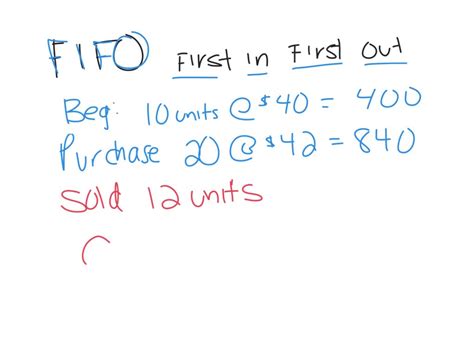 FIFO First in First Out
Beg: 10 units @ $40 = 400
Purchase 20 @ $42 = 840
Sold 12 units
C